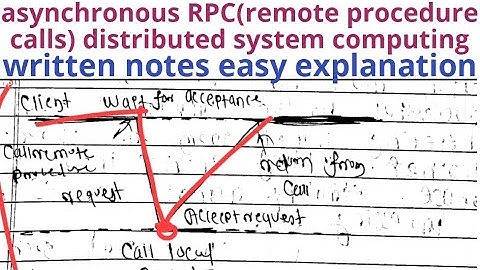 asynchronous RPC(remote procedure
calls) distributed system computing
written notes easy explanation
Client wait for acceptance
Call remote
procedure
request
return from
Call
Accept request
Call local